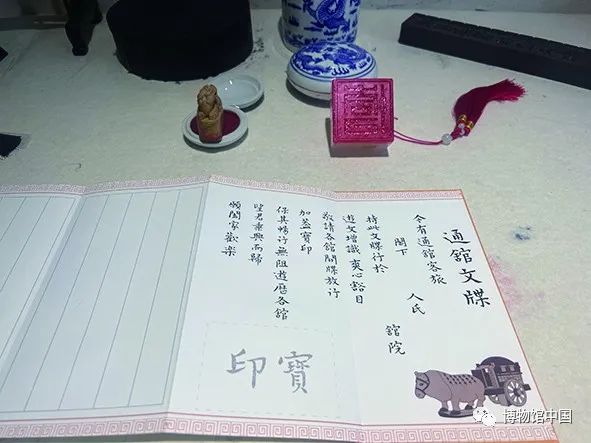 通館文牒
今有通館客旅 人氏
閣下 館院
持此文牒行於
遊文增識 爽心豁目
敬請各館閱牒放行
加蓋寶印
保其暢行無阻遊曆各館
望君乘興而歸
頌闔家歡樂
寶印
博物馆中国